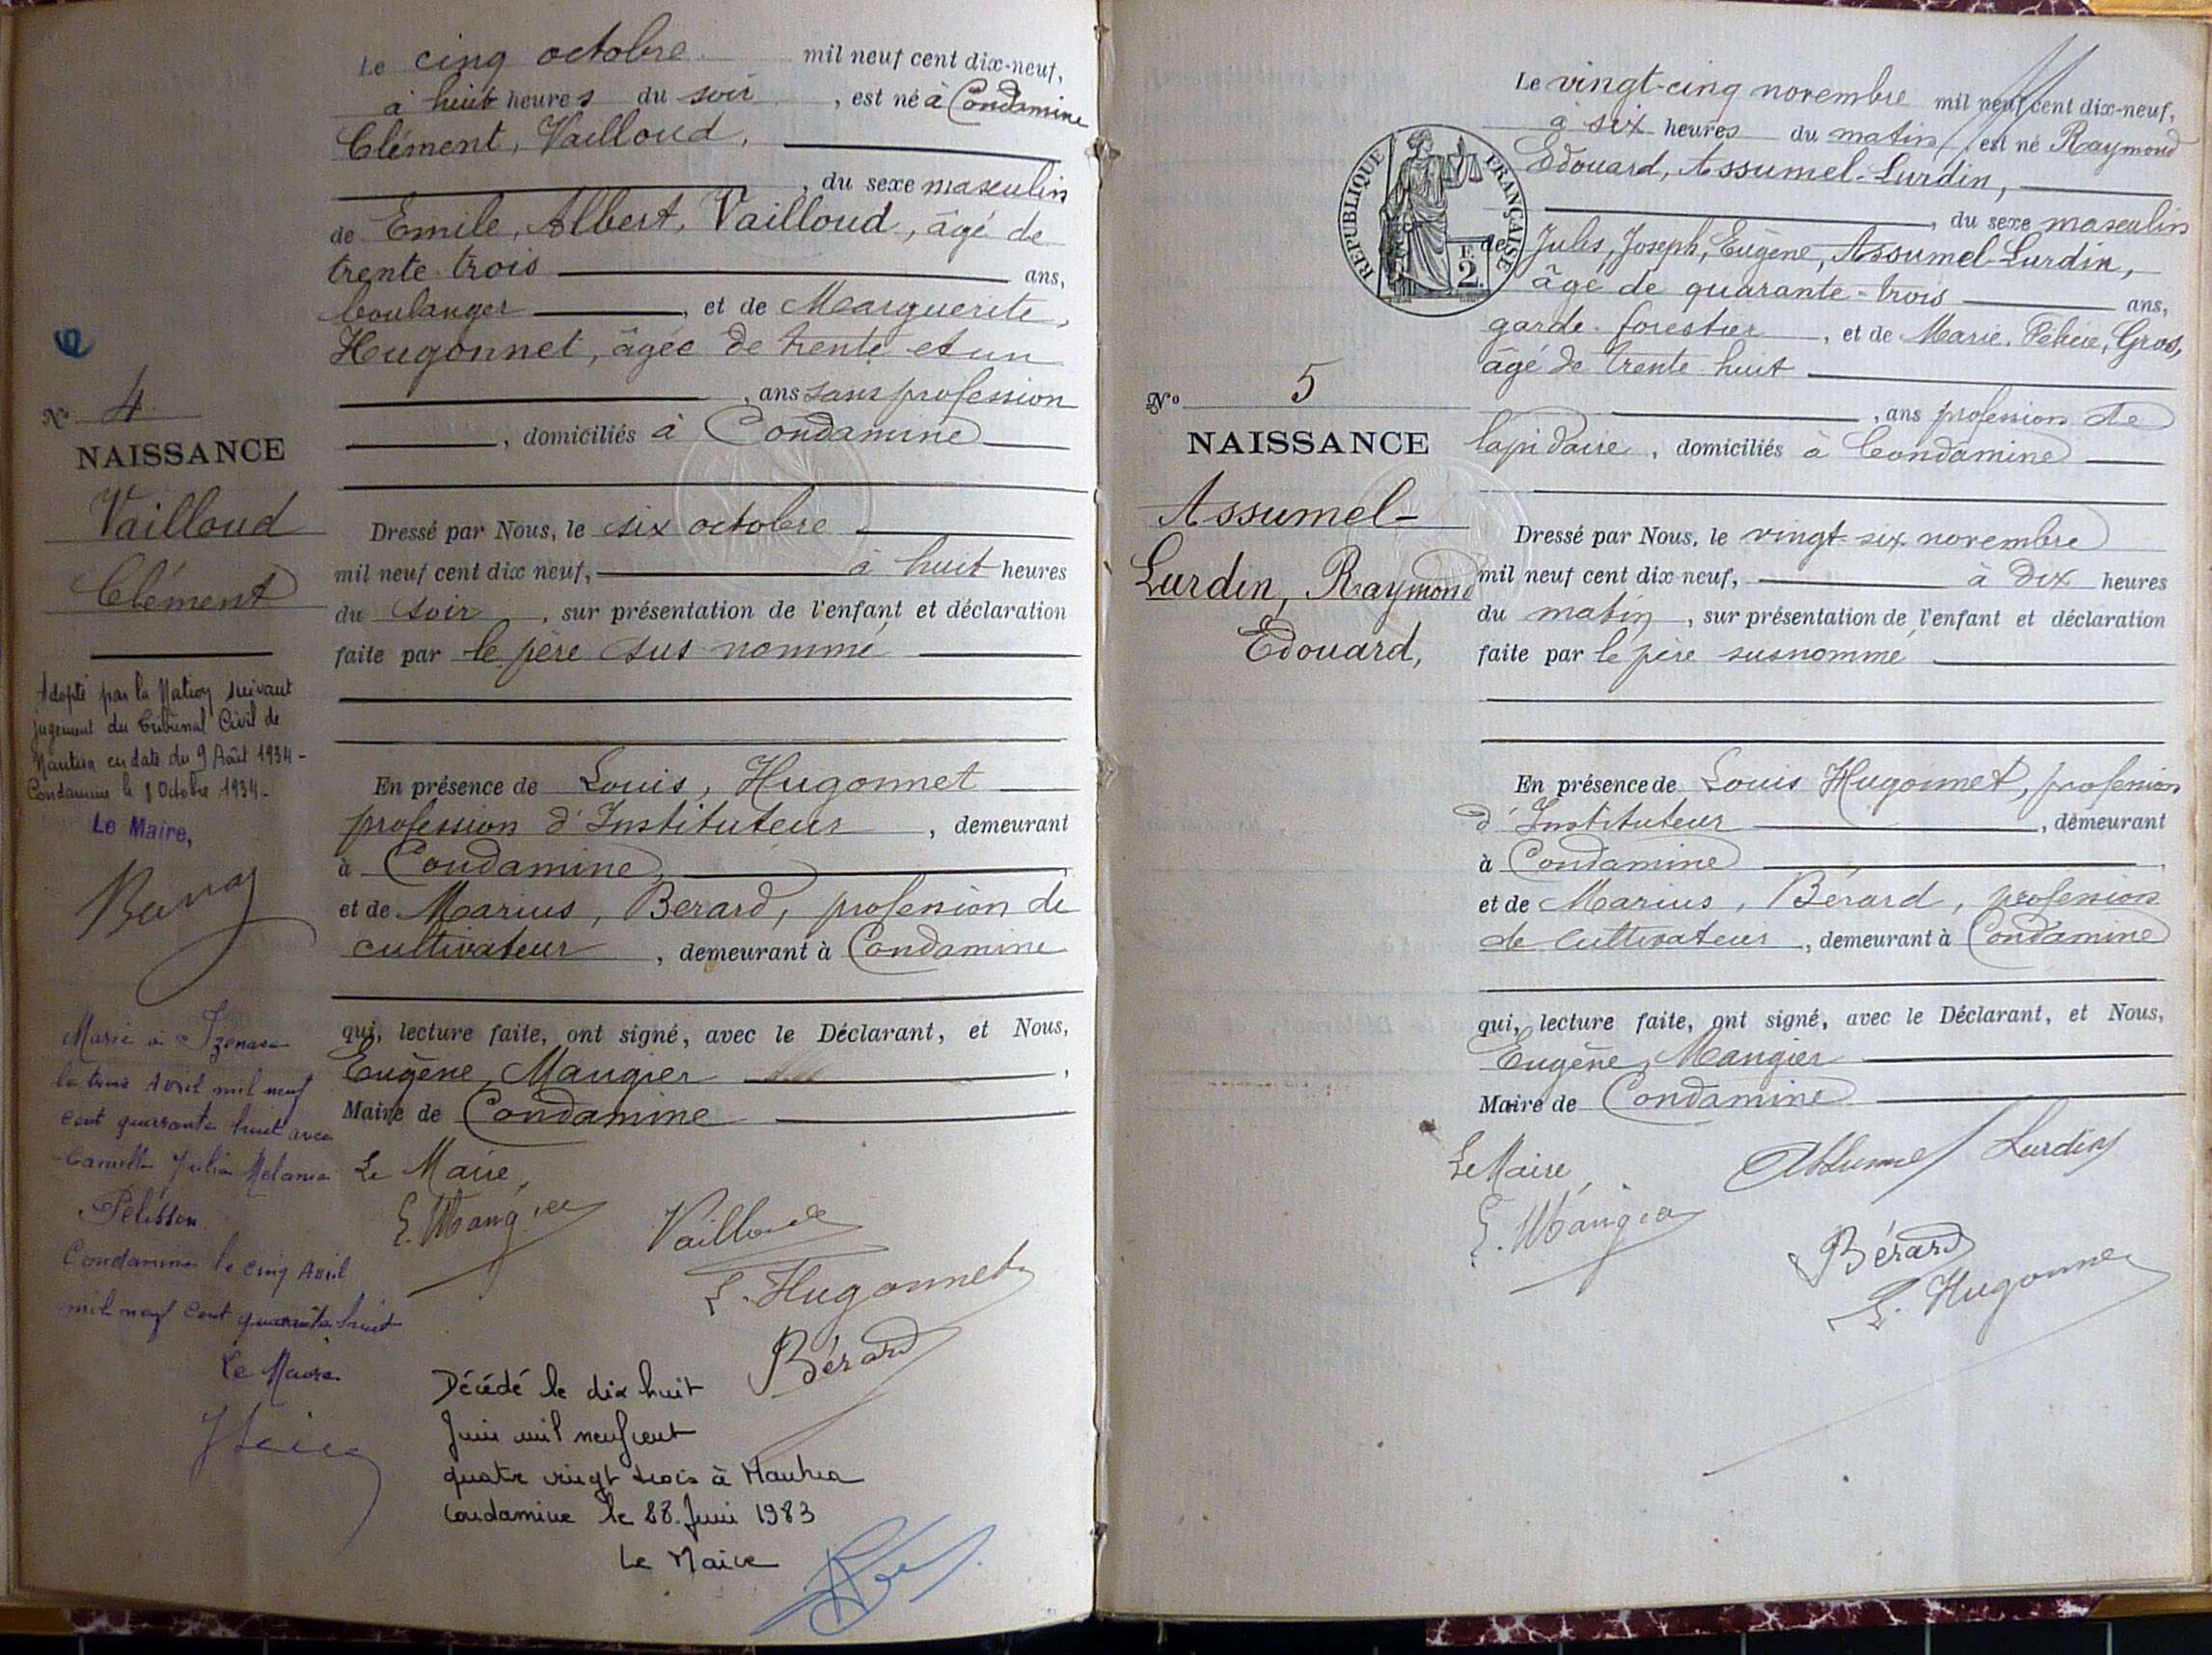 Le cinq octobre mil neuf cent dix-neuf,
à huit heures du soir, est né à Condamine
Clément, Vailloud,
, du sexe masculin
de Emile, Albert, Vailloud, âgé de
trente-trois ans,
boulanger, et de Marguerite,
Hugonnet, âgée de trente et un
, ans sans profession
, domiciliés à Condamine
Dressé par Nous, le six octobre
mil neuf cent dix neuf, à huit heures
du soir, sur présentation de l'enfant et déclaration
faite par le père sus-nommé
En présence de Louis, Hugonnet
profession d'Instituteur, demeurant
à Condamine,
et de Marius, Berard, profession de
cultivateur, demeurant à Condamine
qui, lecture faite, ont signé, avec le Déclarant, et Nous,
Eugène, Maugier,
Maire de Condamine
Le Maire,
E. Maugier
Vailloud
L. Hugonnet
Bérard
Décédé le dix huit
Juin mil neuf cent
quatre vingt trois à Nantua
Condamine le 28 Juin 1983
Le Maire
N° 4
NAISSANCE
Vailloud
Clément
Adopté par la Nation suivant
jugement du Tribunal Civil de
Nantua en date du 9 Août 1934-
Condamine le 8 Octobre 1934-
Le Maire,
Marié à Izenave
le trois Avril mil neuf
cent quarante huit avec
Camille Julia Mélanie
Pélisson
Condamine le cinq Avril
mil neuf cent quarante huit
Le Maire
Le vingt-cinq novembre mil neuf cent dix-neuf,
à six heures du matin, est né Raymond
Edouard, Assumel-Lurdin,
, du sexe masculin
de Jules, Joseph, Eugène, Assumel-Lurdin,
âgé de quarante-trois ans,
garde-forestier, et de Marie, Félicie, Gros,
âgé de trente huit
, ans profession de
lapidaire, domiciliés à Condamine
Dressé par Nous, le vingt-six novembre
mil neuf cent dix neuf, à dix heures
du matin, sur présentation de l'enfant et déclaration
faite par le père susnommé
En présence de Louis Hugonnet, profession
d'Instituteur, demeurant
à Condamine
et de Marius, Bérard, profession
de cultivateur, demeurant à Condamine
qui, lecture faite, ont signé, avec le Déclarant, et Nous,
Eugène, Maugier
Maire de Condamine
Le Maire,
E. Maugier
Assumel Lurdin
Bérard
L. Hugonnet
N° 5
NAISSANCE
Assumel-
Lurdin, Raymond
Edouard,
RÉPUBLIQUE FRANÇAISE
2 F.